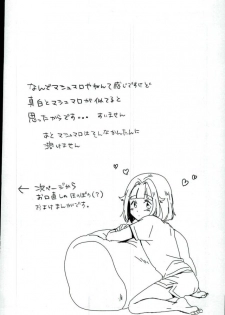 なんでマシュマロやねんって感じですけど
真白とマシュマロが似てると
思ったからです… すいません
あと マシュマロはそんなかんたんに
溶けません
← 次ページから
お口直しの ほっぽり(?)
おまけまんがです。